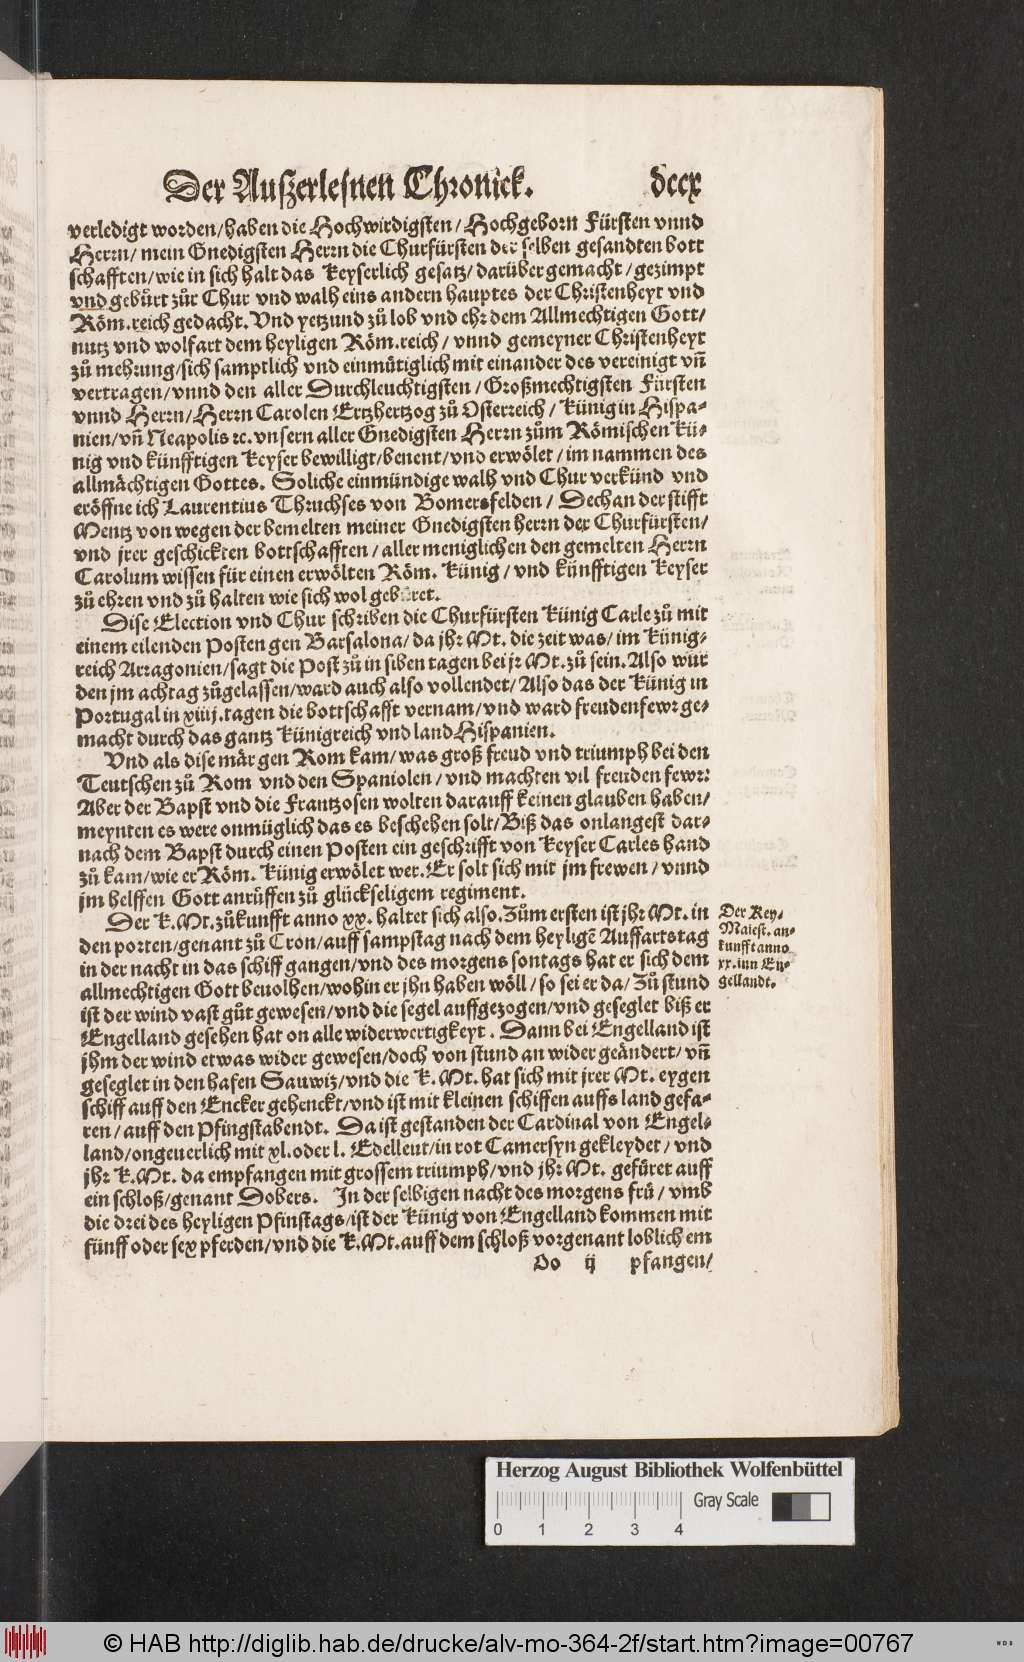 Der Außerlesnen Chronick. dccx
verledigt worden/haben die Hochwirdigsten/Hochgeborn Fürsten vnnd
Herrn/mein Gnedigsten Herrn die Churfürsten der selben gesandten bott
schafften/wie in sich halt das Keyserlich gesatz/darüber gemacht/gezimpt
vnd gebürt zůr Chur vnd walh eins andern hauptes der Christenheyt vnd
Röm.reich gedacht. Vnd yetzund zů lob vnd ehr dem Allmechtigen Gott/
nutz vnd wolfart dem heyligen Röm.reich/vnnd gemeyner Christenheyt
zů mehrung/sich samptlich vnd einmütiglich mit einander des vereinigt vñ
vertragen/vnnd den aller Durchleuchtigsten/Großmechtigsten Fürsten
vnnd Herrn/Herrn Carolen Ertzhertzog zů Osterreich/Künig in Hispa-
nien/vñ Neapolis ꝛc.vnsern aller Gnedigsten Herrn zům Römischen Kü-
nig vnd künfftigen Keyser bewilligt/benent/vnd erwölet/im nammen des
allmächtigen Gottes. Soliche einmündige walh vnd Chur verkünd vnd
eröffne ich Laurentius Thruchses von Bomersfelden/Dechan der stifft
Mentz von wegen der bemelten meiner Gnedigsten herrn der Churfürsten/
vnd jrer geschickten bottschafften/aller meniglichen den gemelten Herrn
Carolum wissen für einen erwölten Röm. Künig/vnd künfftigen Keyser
zů ehren vnd zů halten wie sich wol gebüret.
Dise Election vnd Chur schriben die Churfürsten Künig Carle zů mit
einem eilenden Posten gen Barsalona/da jhr Mt. die zeit was/im Künig-
reich Arragonien/sagt die Post zů in siben tagen bei jr Mt.zů sein.Also wur
den jm achtag zůgelassen/ward auch also vollendet/Also das der Künig in
Portugal in xiiij.tagen die bottschafft vernam/vnd ward freudenfewr ge-
macht durch das gantz Künigreich vnd land Hispanien.
Vnd als dise mär gen Rom kam/was groß freud vnd triumph bei den
Teutschen zů Rom vnd den Spaniolen/vnd machten vil freuden fewr:
Aber der Bapst vnd die Frantzosen wolten darauff keinen glauben haben/
meynten es were onmüglich das es beschehen solt/Biß das onlangest dar-
nach dem Bapst durch einen Posten ein geschrifft von Keyser Carles hand
zů kam/wie er Röm. Künig erwölet wer.Er solt sich mit jm frewen/vnnd
jm helffen Gott anrüffen zů glückseligem regiment.
Der K.Mt.zůkunfft anno xx. haltet sich also.Zům ersten ist jhr Mt. in
den porten/genant zů Cron/auff sampstag nach dem heyligẽ Auffartstag
in der nacht in das schiff gangen/vnd des morgens sontags hat er sich dem
allmechtigen Gott beuolhen/wohin er jhn haben wöll/so sei er da/Zů stund
ist der wind vast gůt gewesen/vnd die segel auffgezogen/vnd geseglet biß er
Engelland gesehen hat on alle widerwertigkeyt. Dann bei Engelland ist
jhm der wind etwas wider gewesen/doch von stund an wider geändert/vñ
geseglet in den hafen Sauwiz/vnd die K.Mt.hat sich mit jrer Mt. eygen
schiff auff den Encker gehenckt/vnd ist mit kleinen schiffen auffs land gefa-
ren/auff den Pfingstabendt. Da ist gestanden der Cardinal von Engel-
land/ongeuerlich mit xl.oder l. Edelleut/in rot Camersyn gekleydet/vnd
jhr K.Mt. da empfangen mit grossem triumph/vnd jhr Mt. gefüret auff
ein schloß/genant Dobers. In der selbigen nacht des morgens frü/vmb
die drei des heyligen Pfinstags/ist der Künig von Engelland kommen mit
fünff oder sex pferden/vnd die K.Mt.auff dem schloß vorgenant loblich em
Oo ij pfangen/
Der Key.
Maiest.an-
kunfft anno
xx.inn En-
gellandt.
Herzog August Bibliothek Wolfenbüttel
Gray Scale
0 1 2 3 4
© HAB http://diglib.hab.de/drucke/alv-mo-364-2f/start.htm?image=00767